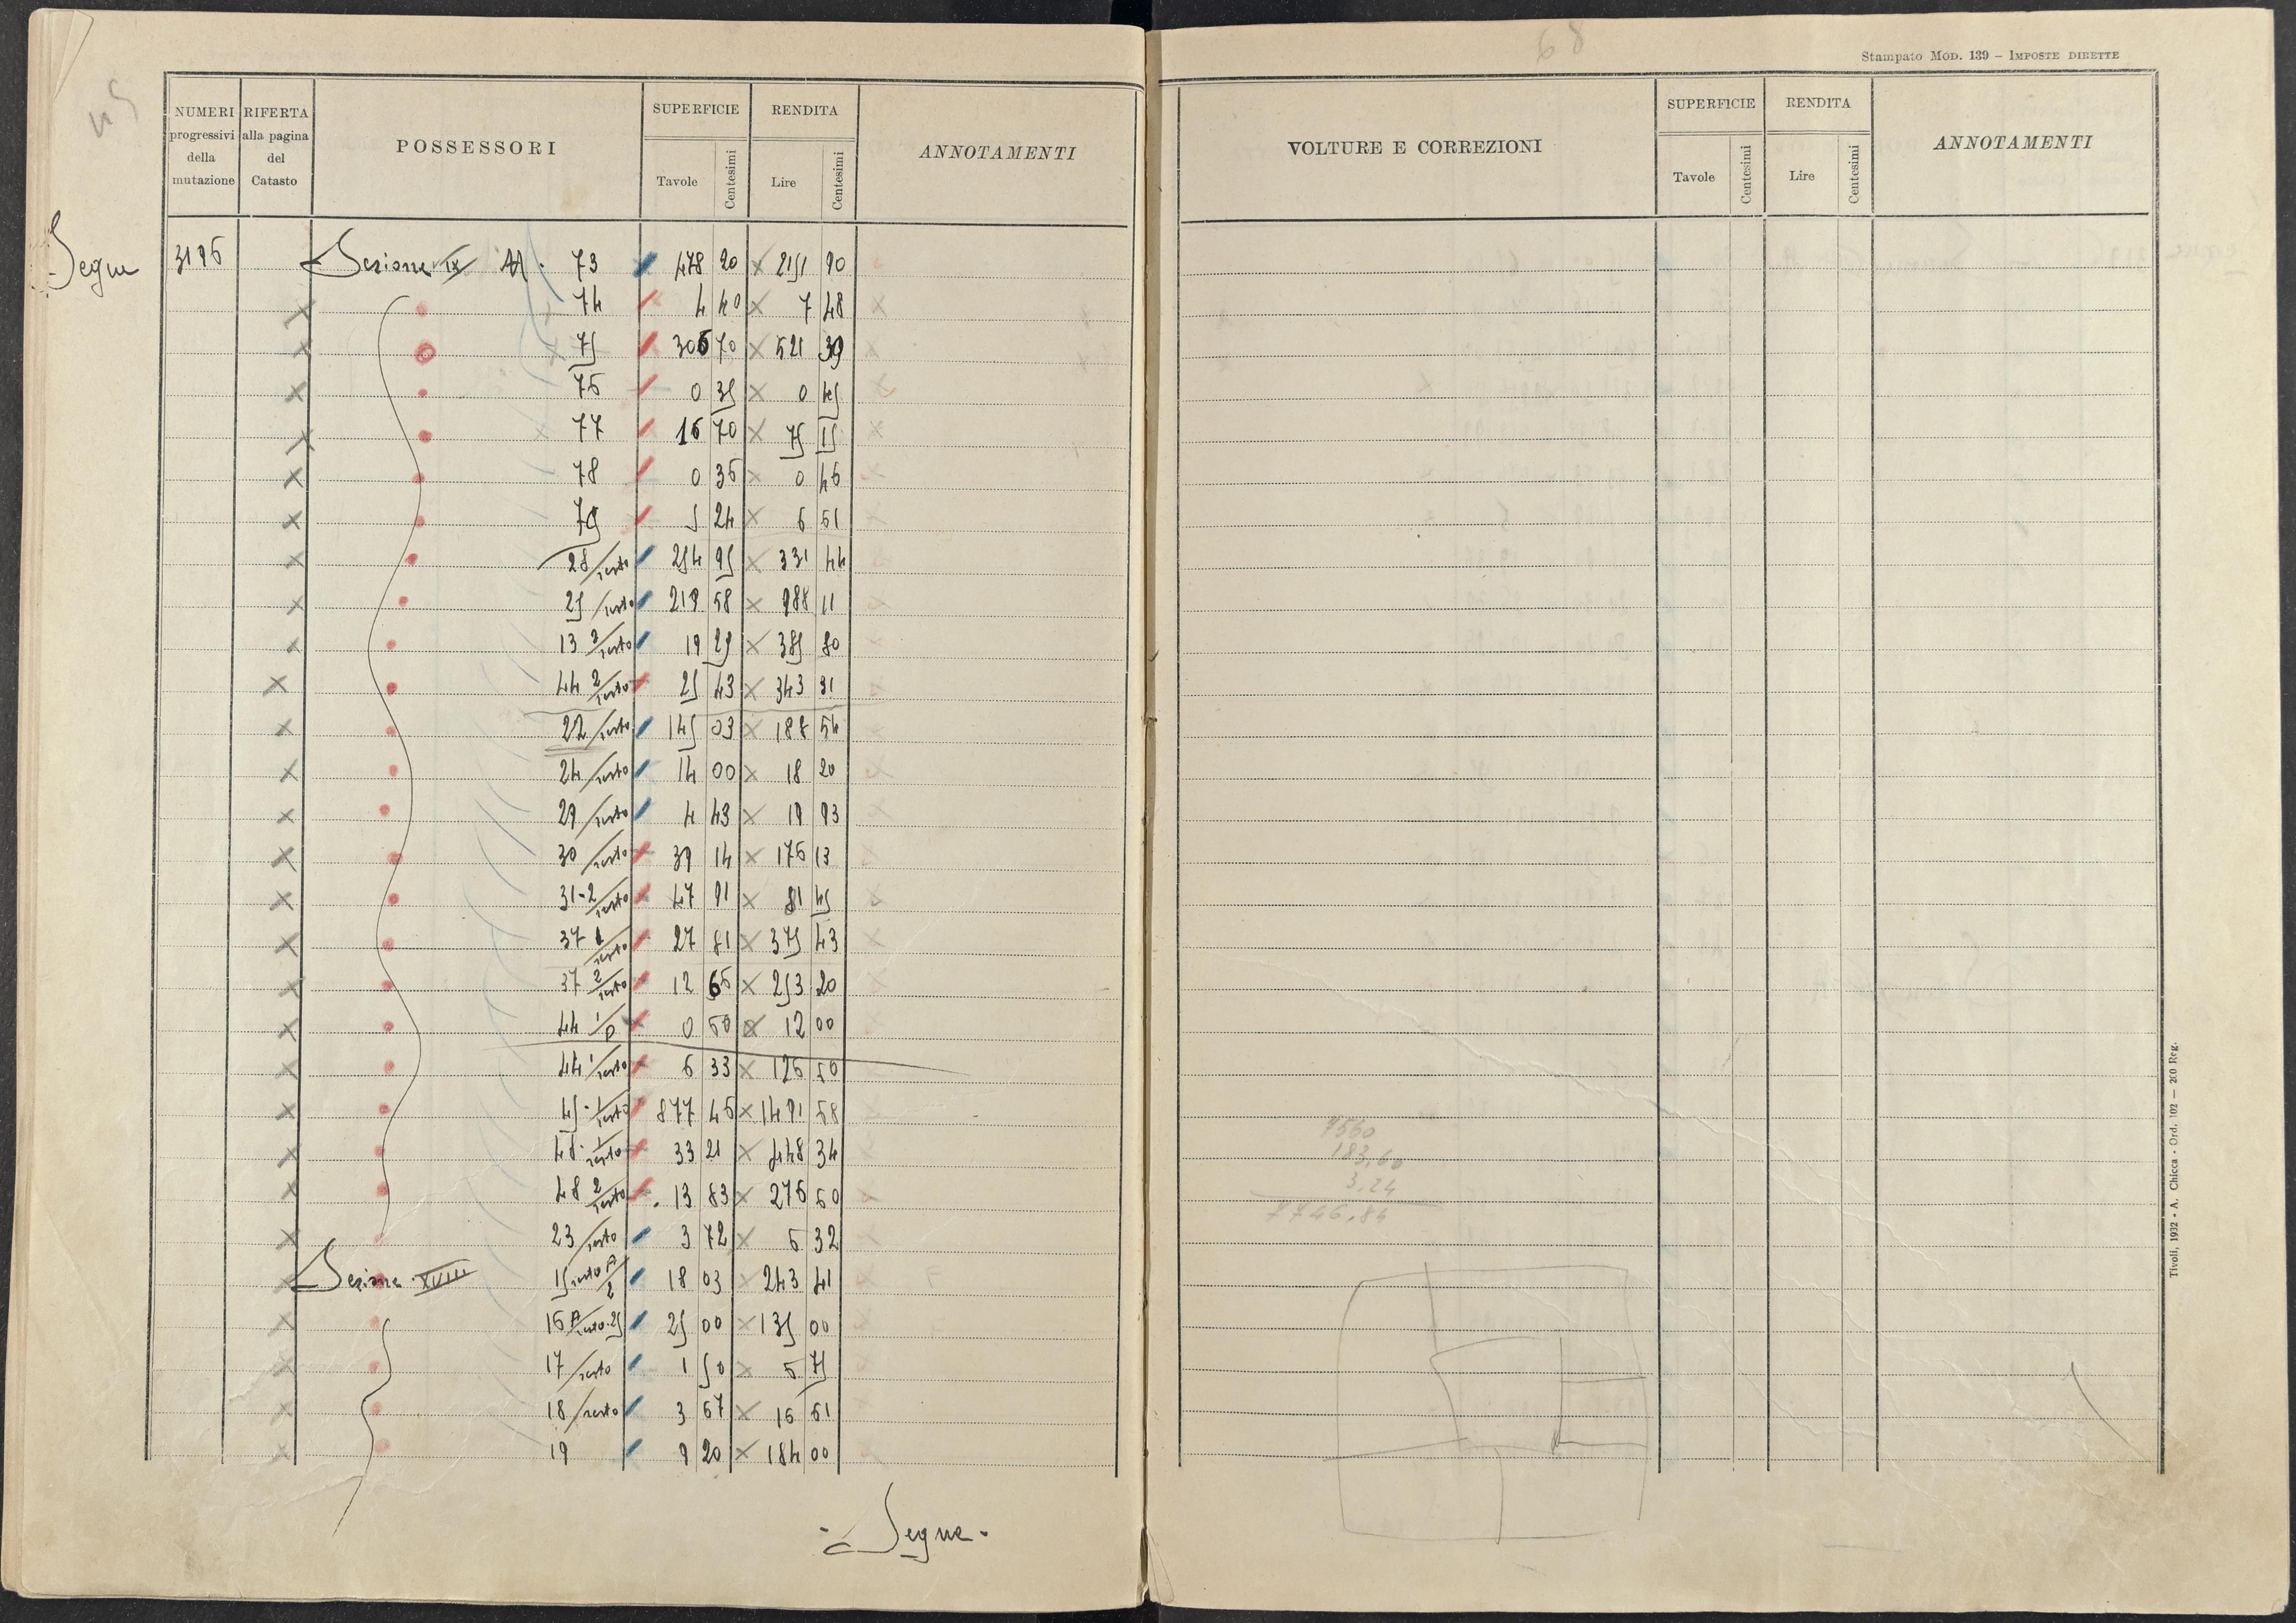 68
Stampato MOD. 139 – IMPOSTE DIRETTE
NUMERI progressivi della mutazione
RIFERTA alla pagina del Catasto
POSSESSORI
SUPERFICIE
Tavole
Centesimi
RENDITA
Lire
Centesimi
ANNOTAMENTI
VOLTURE E CORREZIONI
SUPERFICIE
Tavole
Centesimi
RENDITA
Lire
Centesimi
ANNOTAMENTI
Segue 3196 Sezione IX N. 73 478 20 X 2151 90
X 74 4 40 X 7 48
X 75 306 70 X 521 39
X 76 0 35 X 0 45
X 77 16 70 X 75 15
X 78 0 36 X 0 46
X 79 5 24 X 6 61
X 28/resto 254 95 X 331 44
X 25/resto 219 58 X 988 11
X 13 2/resto 19 29 X 385 80
X 44 2/resto 25 43 X 343 31
X 22/resto 145 03 X 188 54
X 24/resto 14 00 X 18 20
X 29/resto 4 43 X 19 93
X 30/resto 39 14 X 176 13
X 31-2/resto 47 91 X 81 45
X 37 1/resto 27 81 X 375 43
X 37 2/resto 12 66 X 253 20
X 44 1/p 0 60 X 12 00
X 44 1/resto 6 33 X 126 60
X 45-1/resto 877 46 X 1491 68
X 48-1/resto 33 21 X 448 34
X 48 2/resto 13 83 X 276 60
X 23/resto 3 72 X 6 32
Sezione XVIII 15 resto A/2 18 03 X 243 41
X 16 A/resto 25 25 00 X 135 00
X 17/resto 1 50 X 6 75
X 18/resto 3 67 X 16 51
X 19 9 20 X 184 00
- Segue -
7560
183,60
3,24
7746,84
Tivoli, 1932 - A. Chicca - Ord. 102 — 200 Reg.